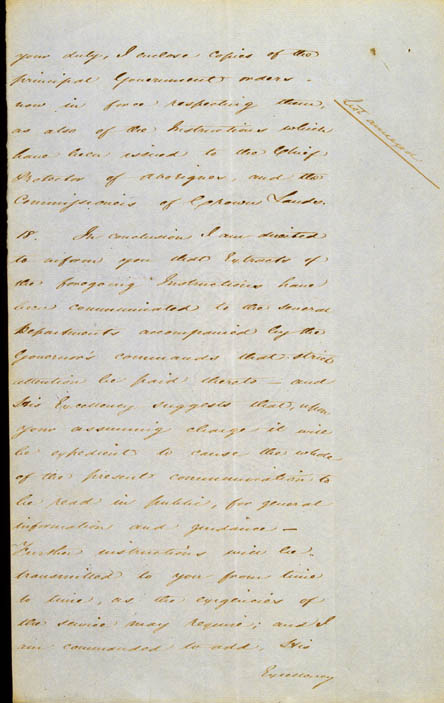 your duty, I enclose copies of the
principal Government orders
now in force respecting them,
as also of the Instructions which
have been issued to the Chief
Protector of Aborigines, and the
Commissioners of Crown Lands.
List annexed
18. In conclusion I am directed
to inform you that Extracts of
the foregoing Instructions have
been communicated to the several
Departments accompanied by the
Governor's commands that strict
attention be paid thereto – and
His Excellency suggests that, upon
your assuming charge it will
be expedient to cause the whole
of the present communication to
be read in public, for general
information and guidance –
Further instructions will be
transmitted to you from time
to time, as the exigencies of
the service may require; and I
am commanded to add, His
Excellency